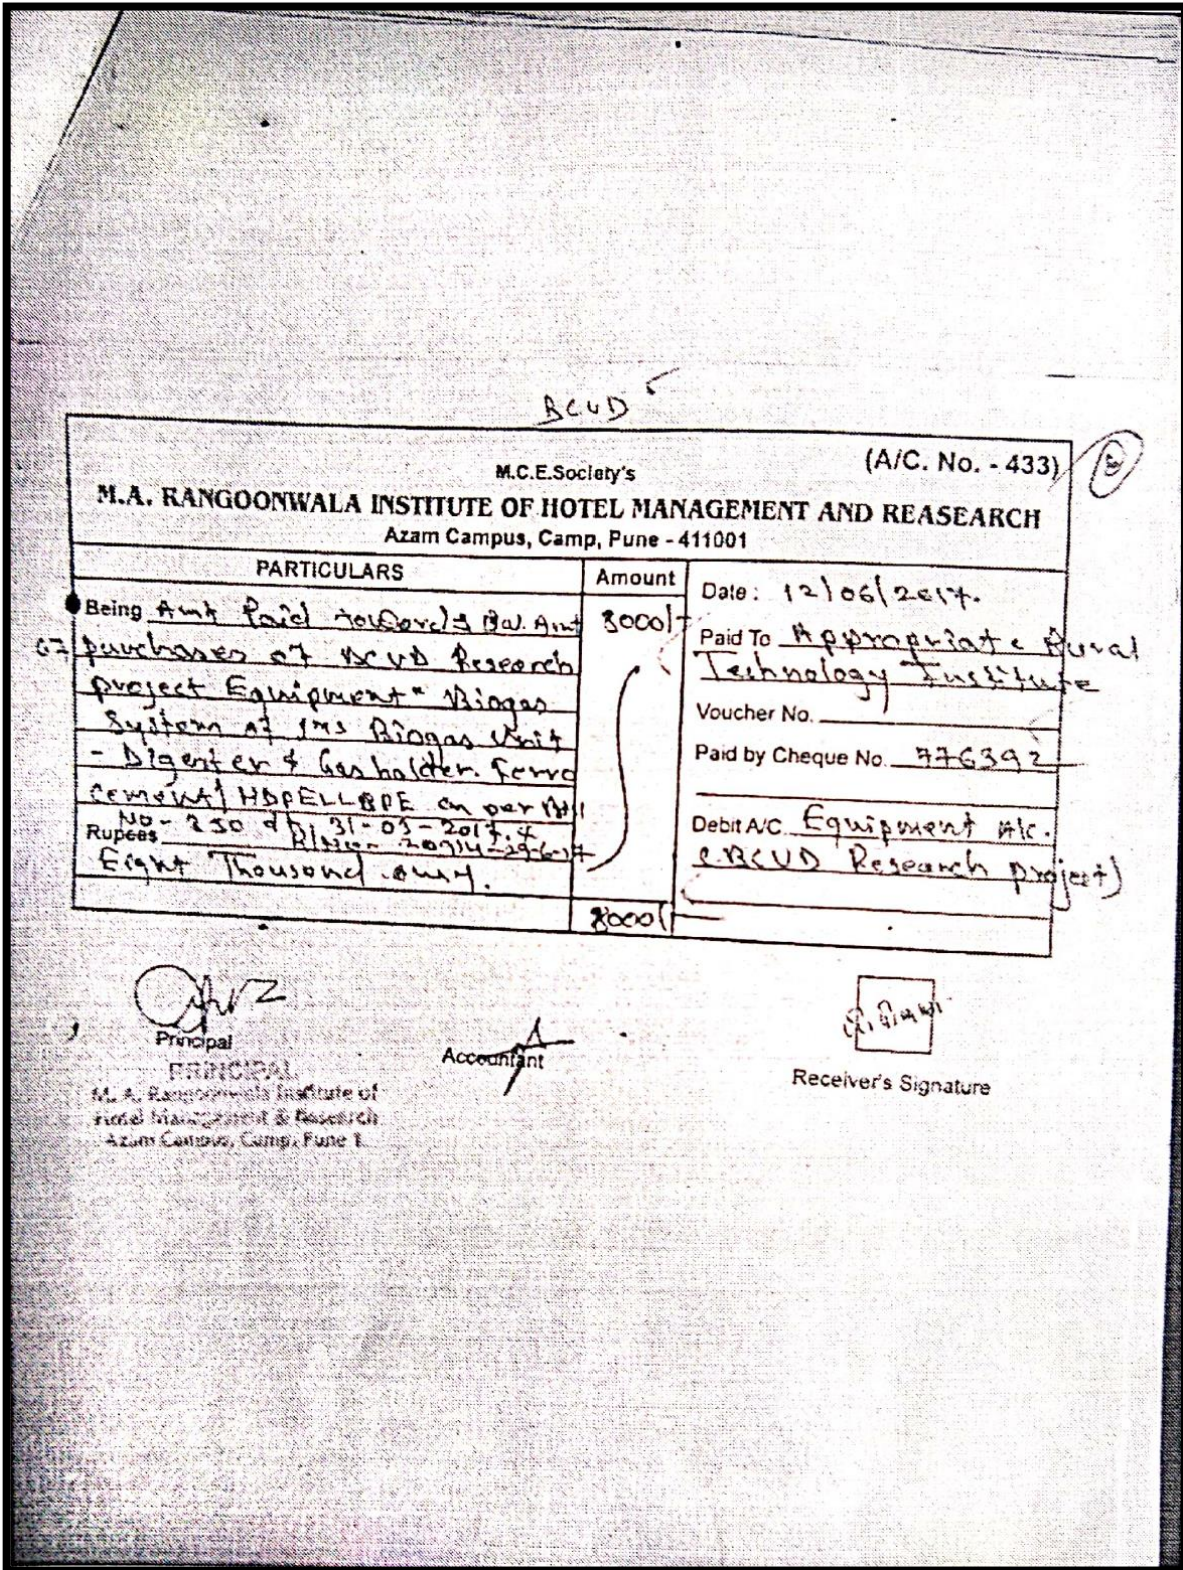 BCUD
(A/C. No. - 433)
M.C.E.Society's
M.A. RANGOONWALA INSTITUTE OF HOTEL MANAGEMENT AND REASEARCH
Azam Campus, Camp, Pune - 411001
PARTICULARS
Amount
Being Amt Paid towards Bal. Amt
8000/-
purchases of BCUD Research
project Equipment " Biogas
System of 1m3 Biogas Unit
- Digester & Gas holder. Ferro
cement/ HDPE as per Bill
No - 250 dt. 31-03-2017. &
Rupees
Eight Thousand only.
8000/-
Date : 12/06/2017.
Paid To Appropriate Rural
Technology Institute
Voucher No.
Paid by Cheque No. 776392
Debit A/C. Equipment A/c.
(BCUD Research project)
Principal
PRINCIPAL
M. A. Rangoonwala Institute of
Hotel Management & Research
Azam Campus, Camp, Pune 1.
Accountant
Receiver's Signature